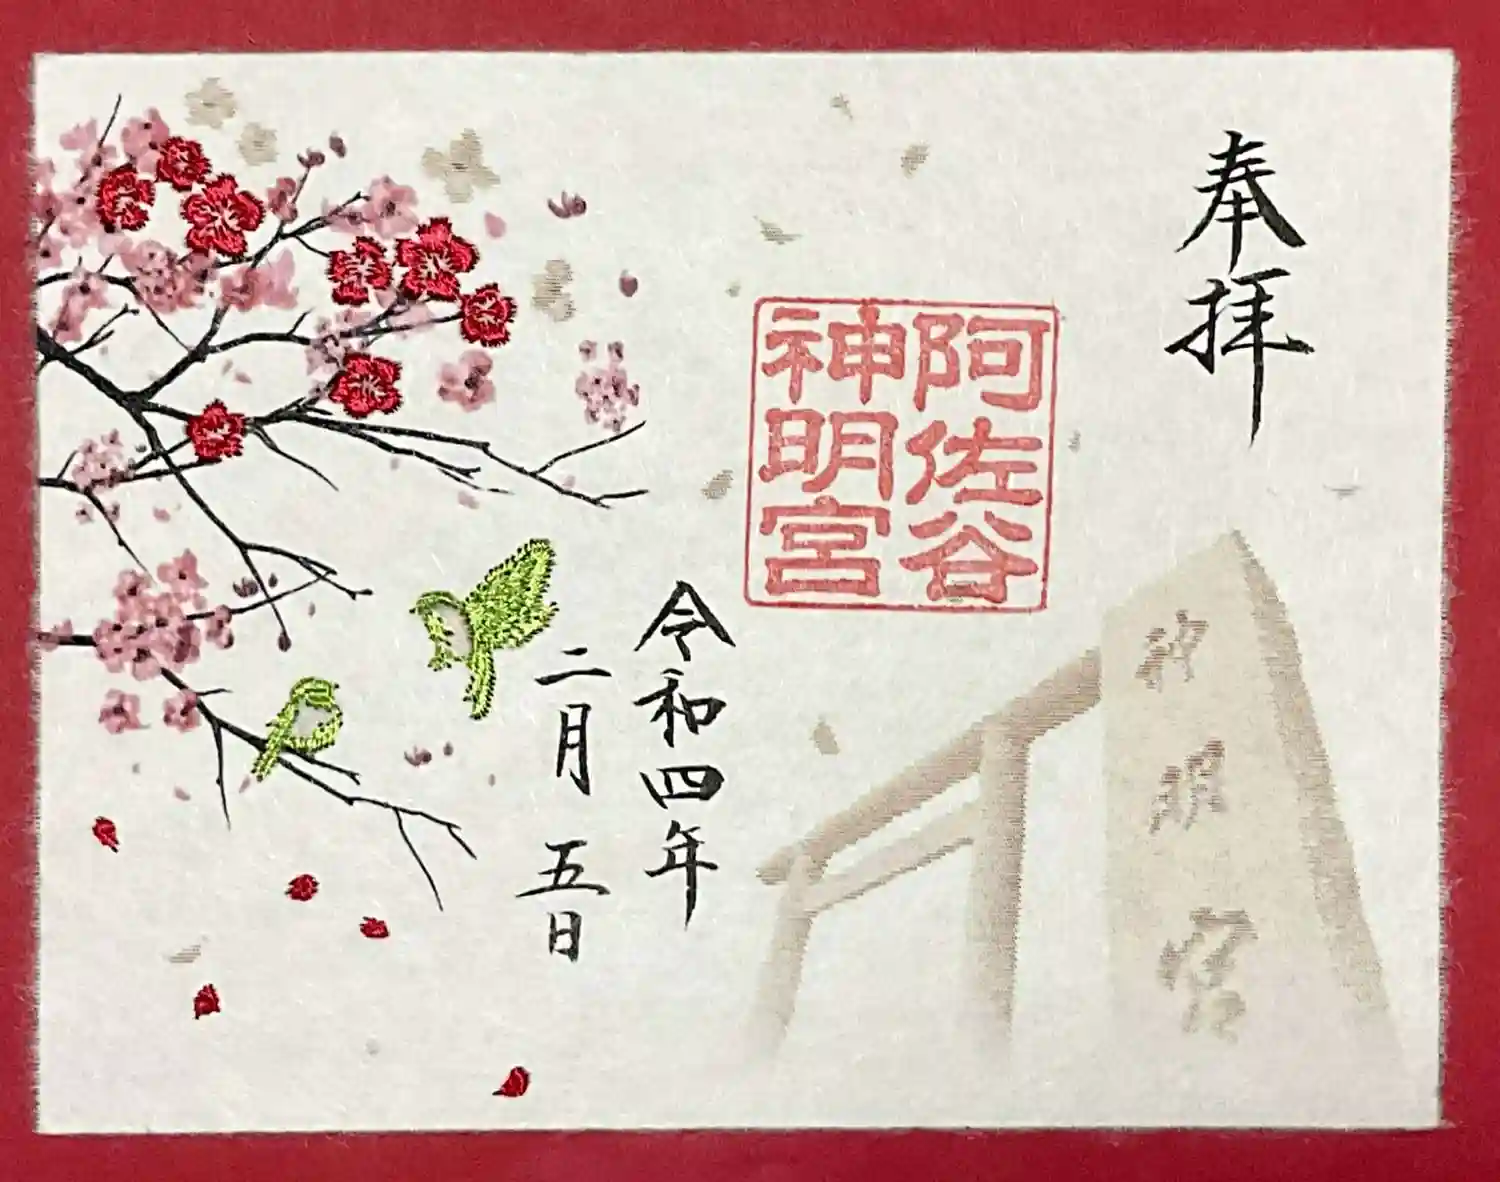 奉拝
阿佐谷
神明宮
神明宮
令和四年
二月五日